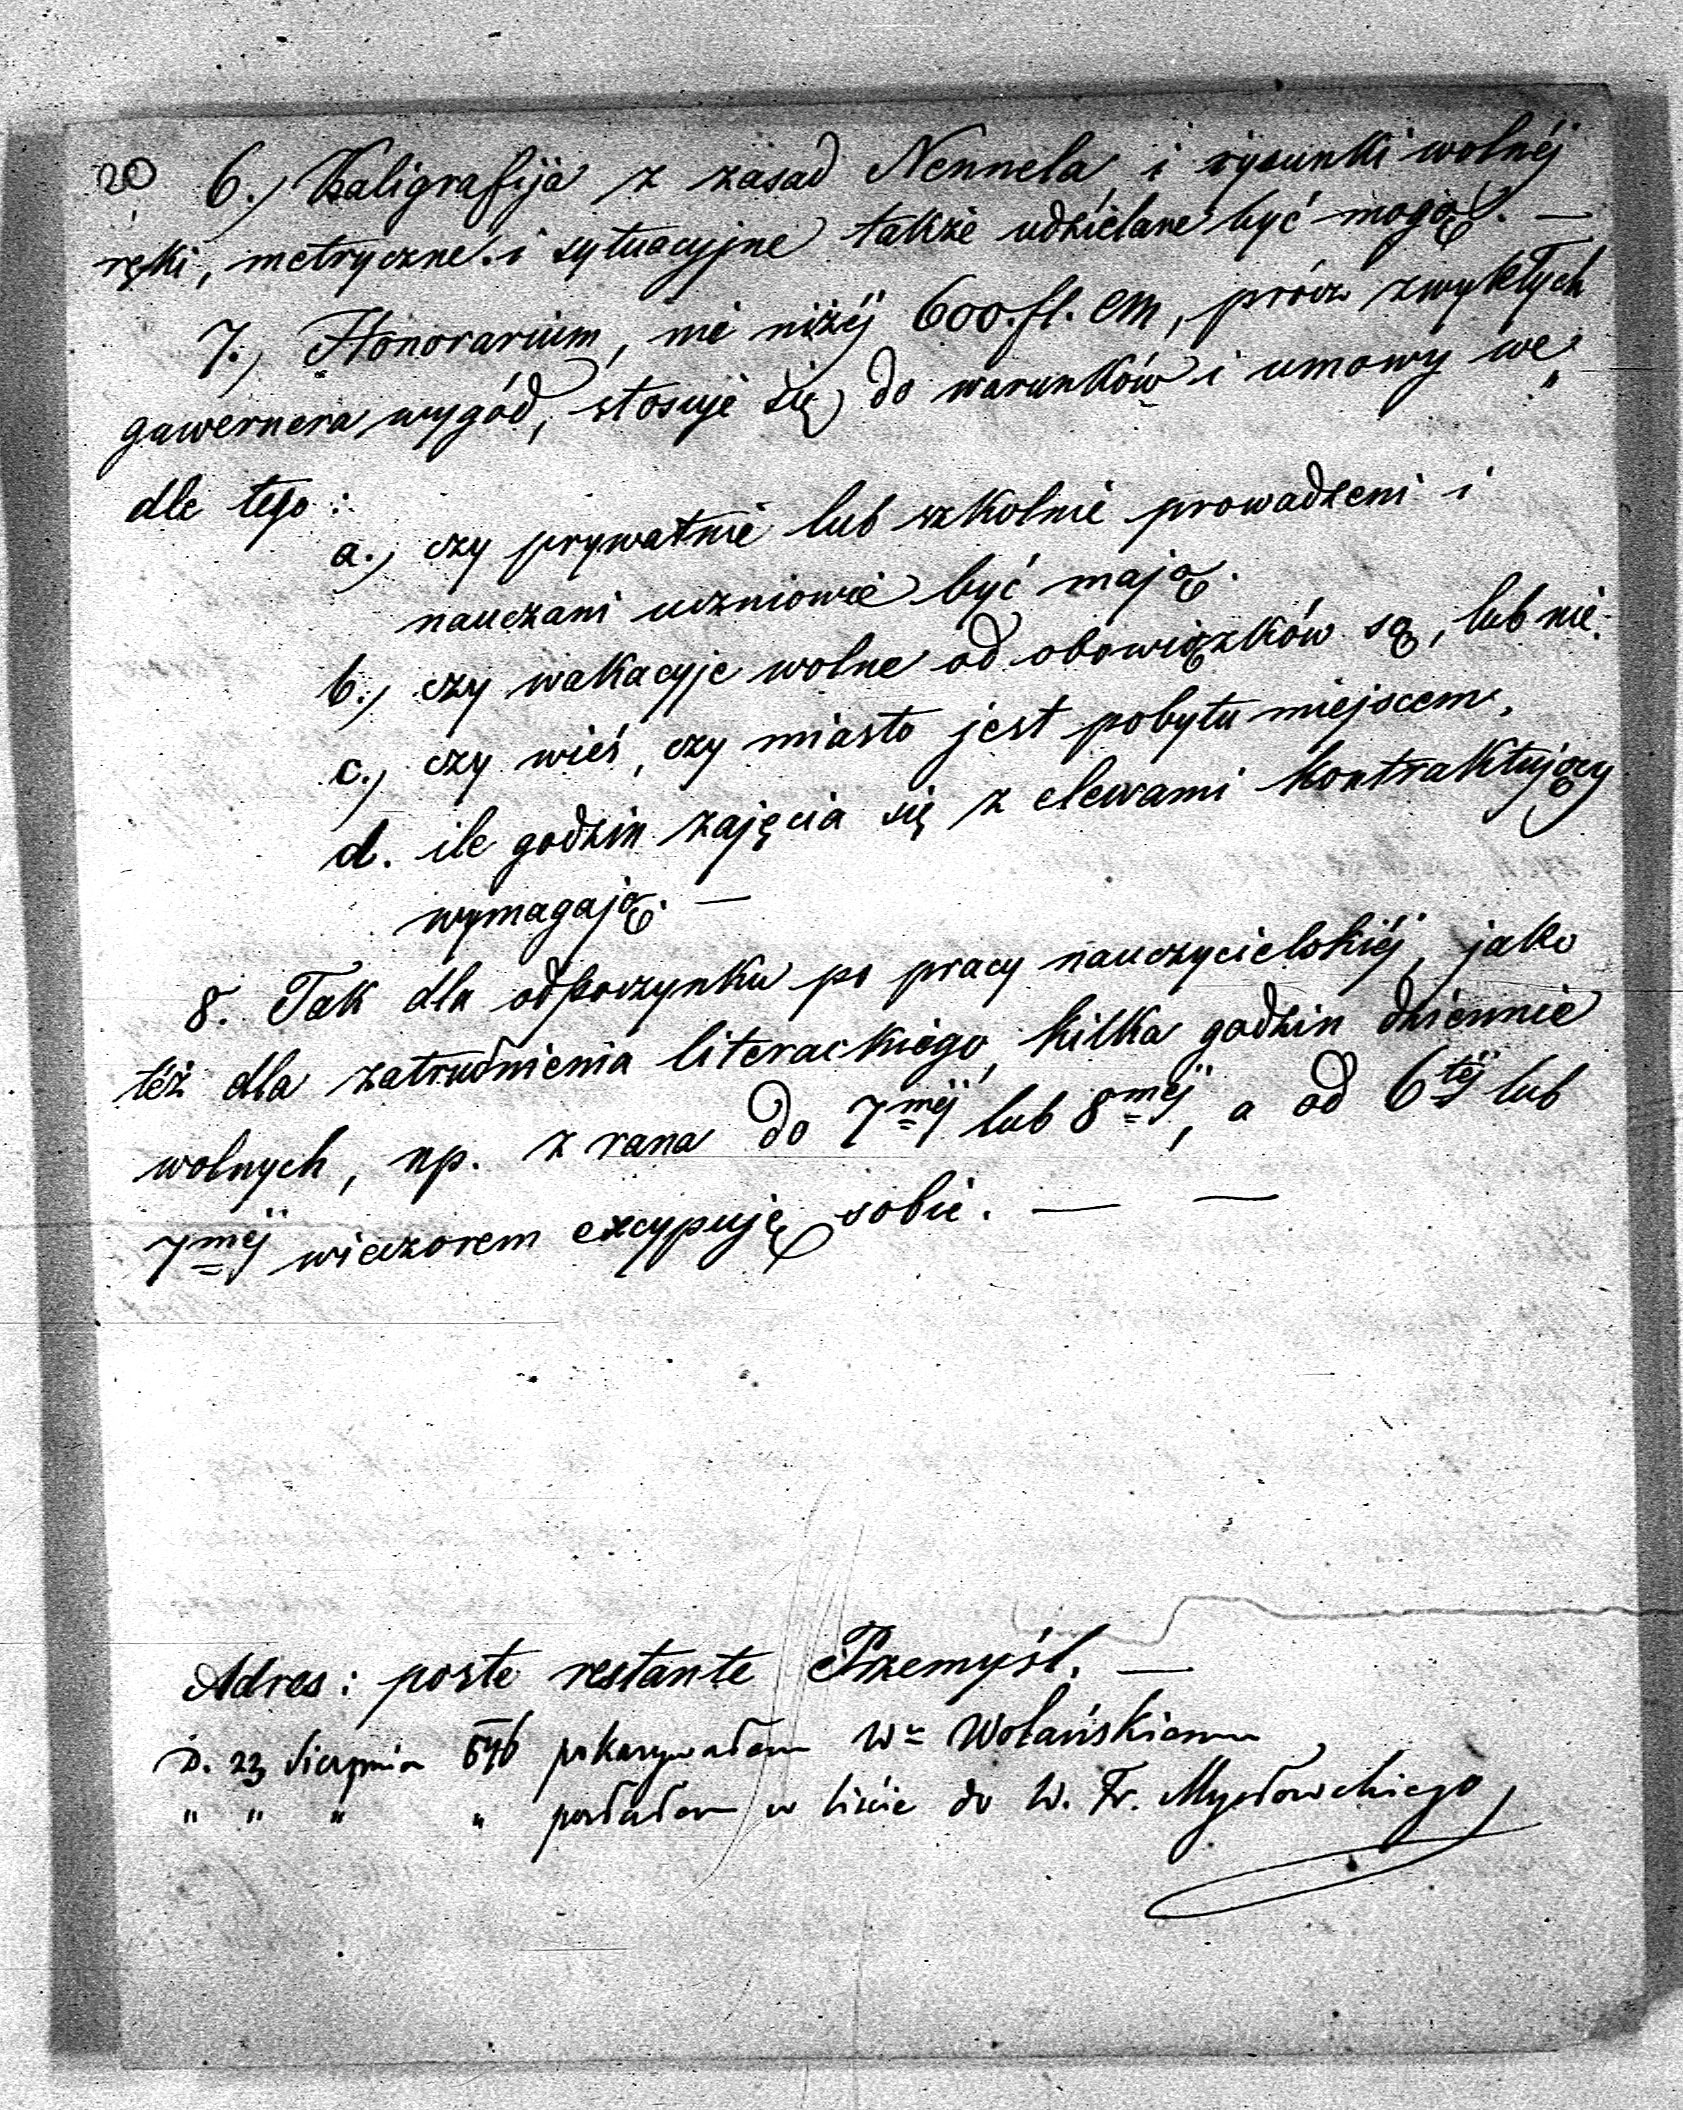 20
6.) Kaligrafija z zasad Nennela i rysunki wolnéj
ręki, metryczne i sytuacyjne także udzielane być mogą. —
7.) Honorarium, nie niżéj 600. fl. CM, prócz zwykłych
guwernera wygód, stosuje się do warunków i umowy we„
dle tego:
a.) czy prywatnie lub szkolnie prowadzeni i
nauczani uczniowie być mają.
b.) czy wakacyje wolne od obowiązków są, lub nie.
c.) czy wieś, czy miasto jest pobytu miejscem.
d. ile godzin zajęcia się z elewami kontraktujący
wymagają. —
8. Tak dla odpoczynku po pracy nauczycielskiéj, jako
téż dla zatrudnienia literackiego, kilka godzin dziennie
wolnych, np. z rana do 7méj lub 8méj, a od 6téj lub
7méj wieczorem excypuję sobie. — —
Adres: poste restante Przemyśl. —
D. 23 Sierpnia 856 pokazywałem W. Wolańskiemu
" " " " posłałem w liście do W. Fr. Mysłowskiego